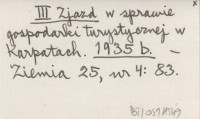 III Zjazd w sprawie
gospodarki turystycznej w
Karpatach. 1935 b. –
Ziemia 25, nr 4: 83.